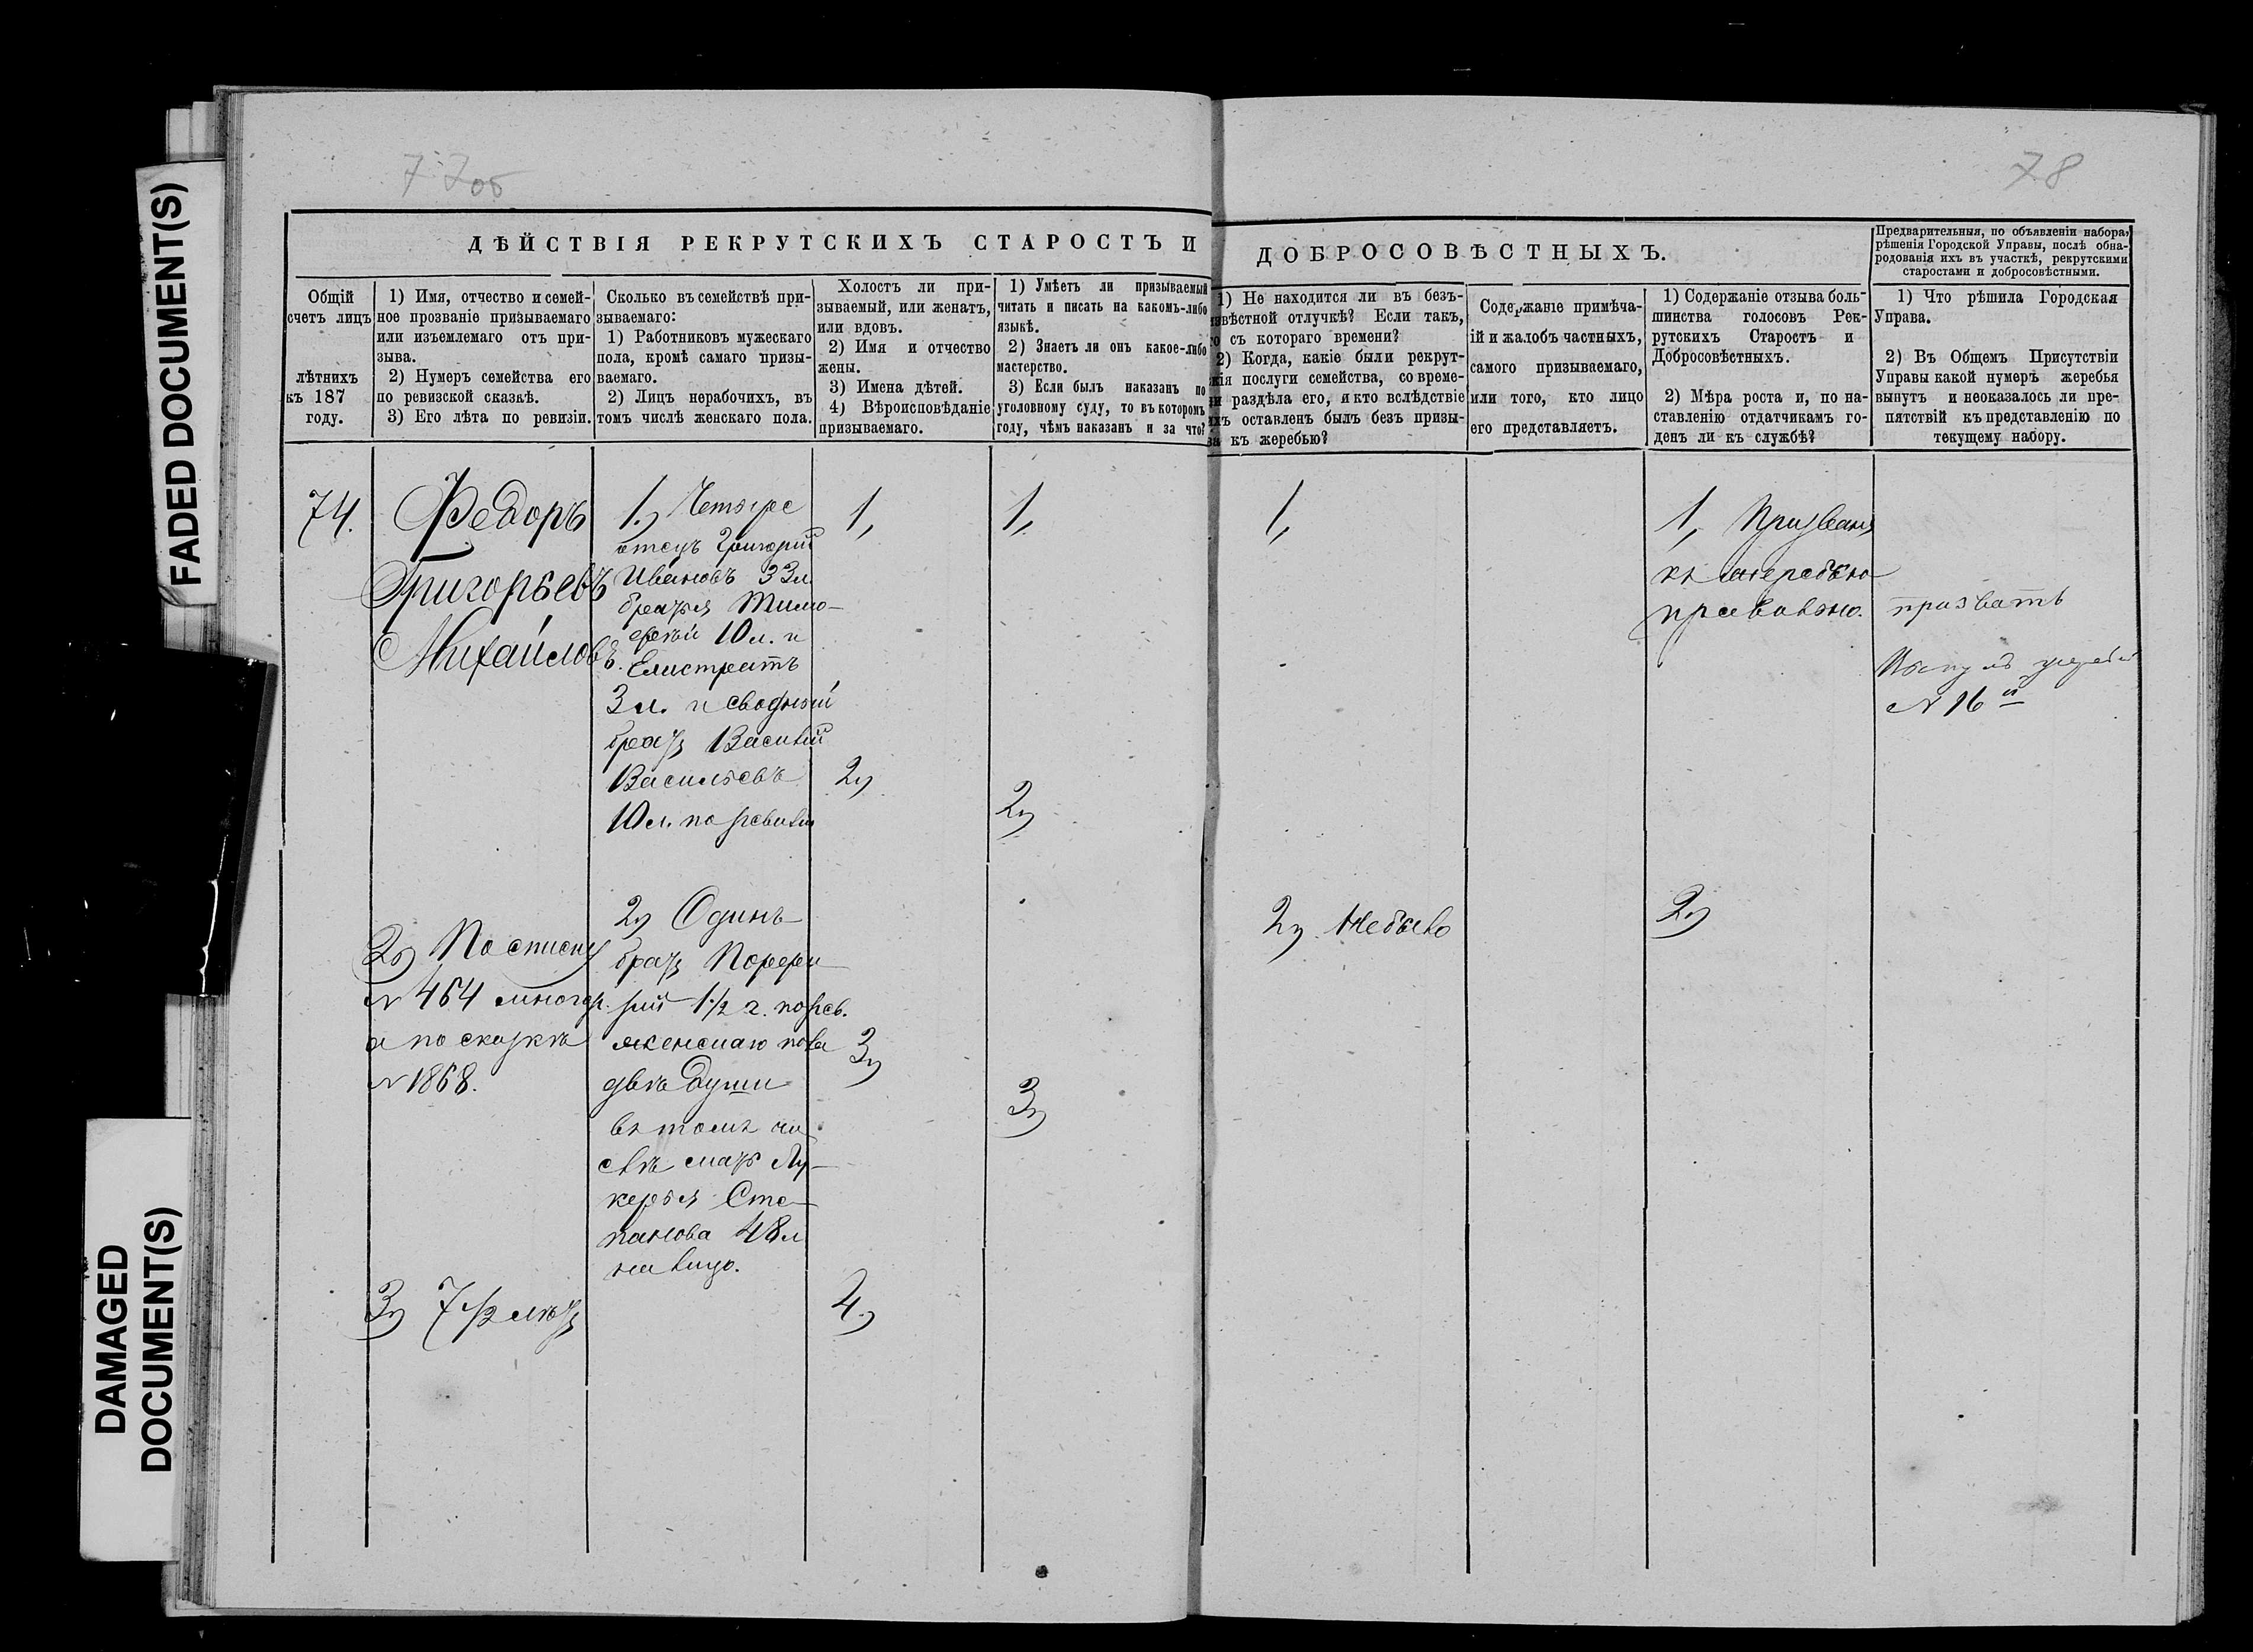 FADED DOCUMENT(S)
DAMAGED
DOCUMENT(S)
77об
78
ДѢЙСТВІЯ РЕКРУТСКИХЪ СТАРОСТЪ И
ДОБРОСОВѢСТНЫХЪ.
Предварительныя, по объявленіи набора,
рѣшенія Городской Управы, послѣ обна-
родованія ихъ въ участкѣ, рекрутскими
старостами и добросовѣстными.
Общій
счетъ лицъ
лѣтнихъ
къ 187
году.
1) Имя, отчество и семей-
ное прозваніе призываемаго
или изъемлемаго отъ при-
зыва.
2) Нумеръ семейства его
по ревизской сказкѣ.
3) Его лѣта по ревизіи.
Сколько въ семействѣ при-
зываемаго:
1) Работниковъ мужескаго
пола, кромѣ самаго призы-
ваемаго.
2) Лицъ нерабочихъ, въ
томъ числѣ женскаго пола.
Холостъ ли при-
зываемый, или женатъ,
или вдовъ.
2) Имя и отчество
жены.
3) Имена дѣтей.
4) Вѣроисповѣданіе
призываемаго.
1) Умѣетъ ли призываемый
читать и писать на какомъ-либо
языкѣ.
2) Знаетъ ли онъ какое-либо
мастерство.
3) Если былъ наказанъ по
уголовному суду, то въ которомъ
году, чѣмъ наказанъ и за что?
1) Не находится ли въ безъ-
извѣстной отлучкѣ? Если такъ,
то съ котораго времени?
2) Когда, какіе были рекрут-
скія послуги семейства, со време-
ни раздѣла его, и кто вслѣдствіе
ихъ оставленъ былъ безъ призы-
ва къ жеребью?
Содержаніе примѣча-
ій и жалобъ частныхъ,
самого призываемаго,
или того, кто лицо
его представляетъ.
1) Содержаніе отзыва боль-
шинства голосовъ Рек-
рутскихъ Старостъ и
Добросовѣстныхъ.
2) Мѣра роста и, по на-
ставленію отдатчикамъ го-
денъ ли къ службѣ?
1) Что рѣшила Городская
Управа.
2) Въ Общемъ Присутствіи
Управы какой нумеръ жеребья
вынутъ и неоказалось ли пре-
пятствій къ представленію по
текущему набору.
74.
Федоръ
Григорьевъ
Михайловъ.
2) По списку
№ 464 многор.
а по сказкѣ
№ 1868.
3) 7 1/2 лѣтъ
1) Четыре
отецъ Григорій
Ивановъ 33 л.
братья Тимо-
фей 10 л. и
Елистратъ
3 л. и сводный
братъ Василій
Васильевъ
10 л. по ревизіи
2) Одинъ
братъ Порфи-
рій 1 1/2 г. по рев.
женскаго пола
двѣ души
въ томъ чи-
слѣ мать Лу-
керья Сте-
панова 48 л
на лицо.
1,
2)
3)
4)
1,
2)
3)
1,
2) Небыло
1, Призванъ
къ жеребью
правильно.
2)
призвать
Вынулъ жребій
№ 16й